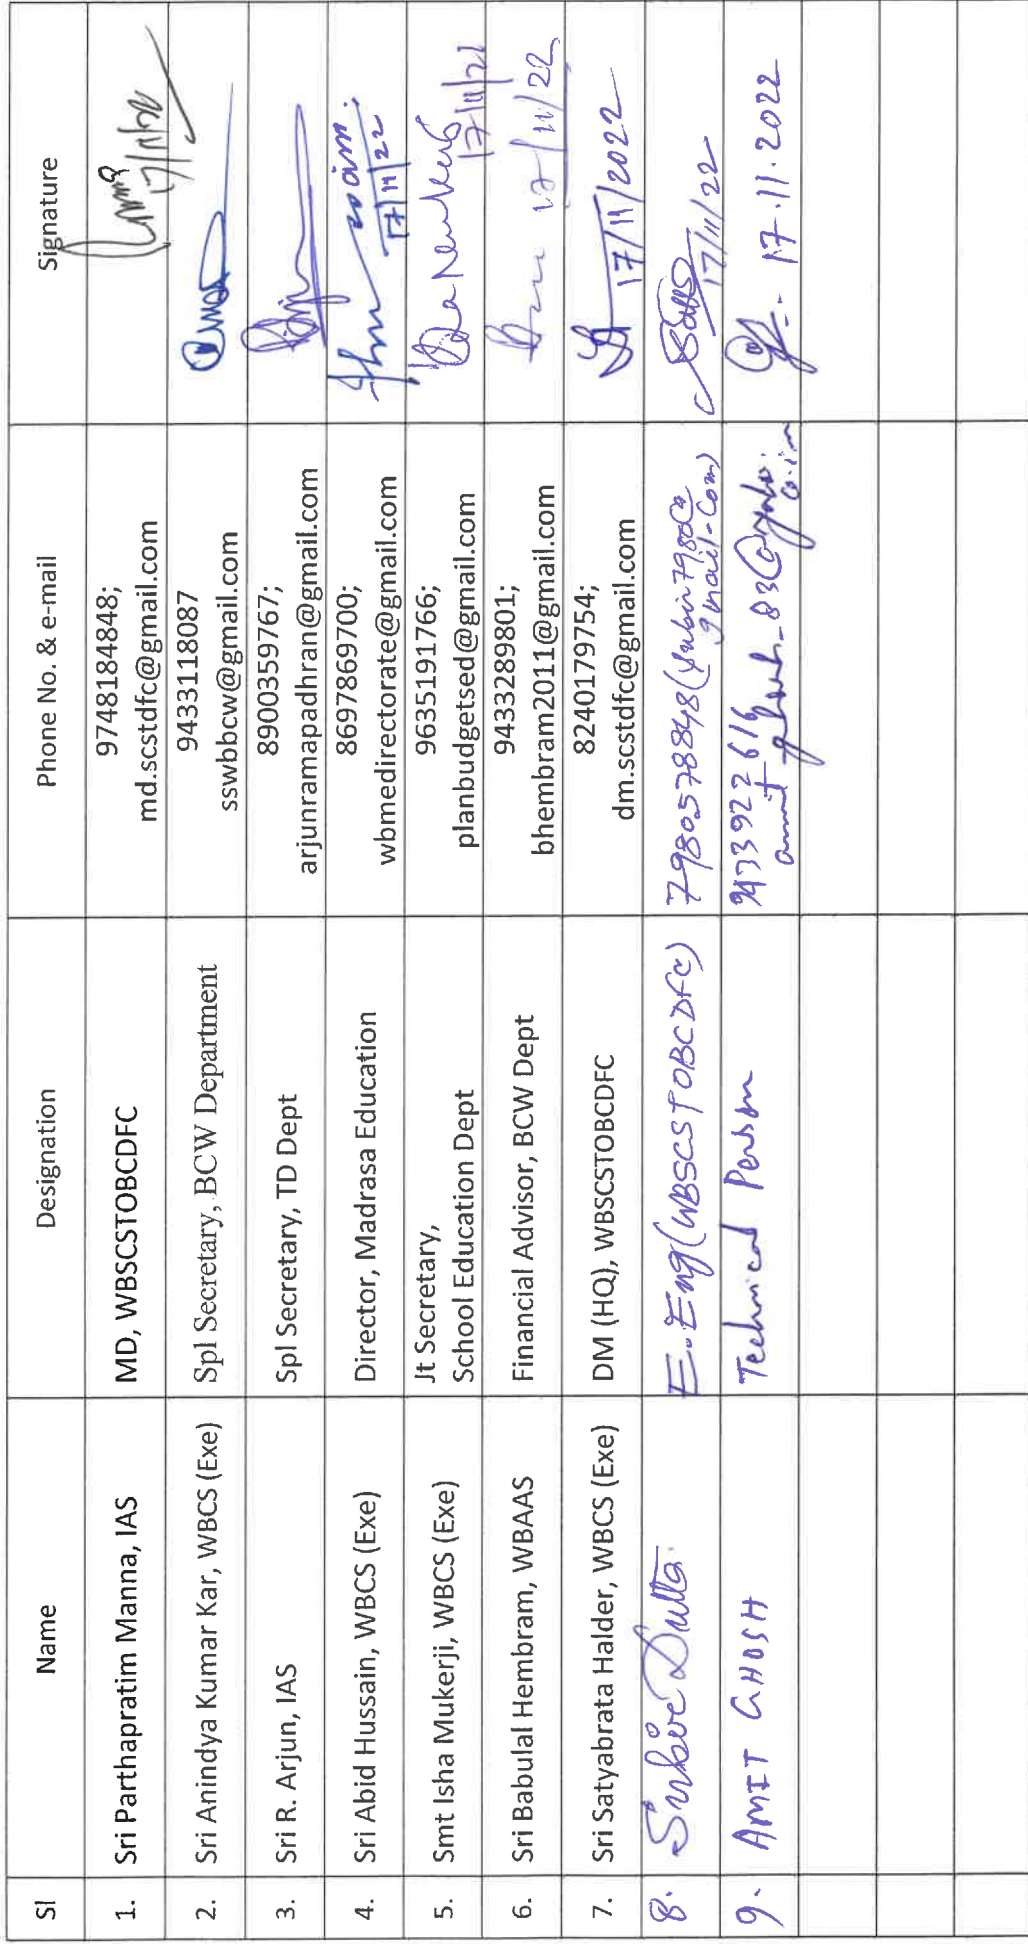 Sl Name Designation Phone No. & e-mail Signature
1. Sri Parthapratim Manna, IAS MD, WBSCSTOBCDFC 9748184848;
md.scstdfc@gmail.com 17/11/22
2. Sri Anindya Kumar Kar, WBCS (Exe) Spl Secretary, BCW Department 9433118087
sswbbcw@gmail.com
3. Sri R. Arjun, IAS Spl Secretary, TD Dept 8900359767;
arjunramapadhran@gmail.com
4. Sri Abid Hussain, WBCS (Exe) Director, Madrasa Education 8697869700;
wbmedirectorate@gmail.com 17/11/22
5. Smt Isha Mukerji, WBCS (Exe) Jt Secretary, 9635191766;
School Education Dept planbudgetsed@gmail.com 17/11/22
6. Sri Babulal Hembram, WBAAS Financial Advisor, BCW Dept 9433289801;
bhembram2011@gmail.com 17/11/22
7. Sri Satyabrata Halder, WBCS (Exe) DM (HQ), WBSCSTOBCDFC 8240179754;
dm.scstdfc@gmail.com 17/11/2022
8. Subir Dutta E.Eng(WBSCSTOBCDFC) 7980578848(subir7980@
gmail.com) 17/11/22
9. AMIT GHOSH Technical Person 9433922616
amit ghosh_83@yahoo.
co.in 17.11.2022